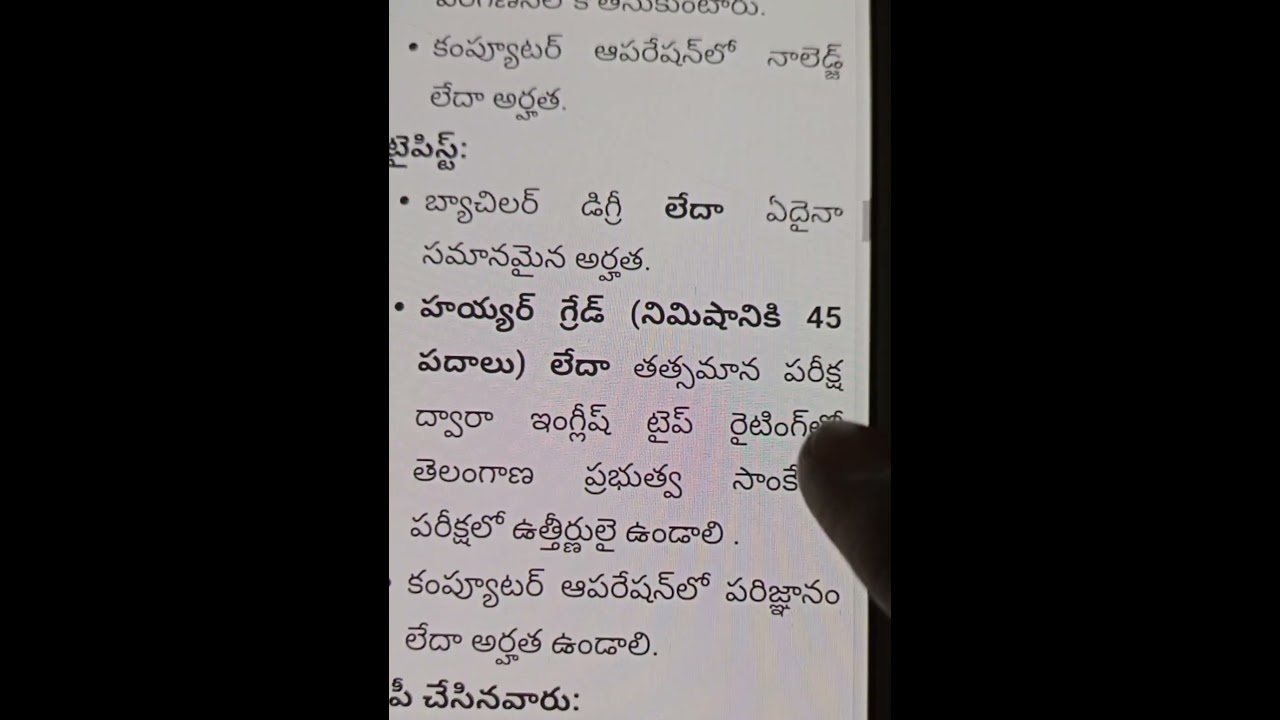 • కంప్యూటర్ ఆపరేషన్‌లో నాలెడ్జ్
లేదా అర్హత.
టైపిస్ట్:
• బ్యాచిలర్ డిగ్రీ లేదా ఏదైనా
సమానమైన అర్హత.
• హయ్యర్ గ్రేడ్ (నిమిషానికి 45
పదాలు) లేదా తత్సమాన పరీక్ష
ద్వారా ఇంగ్లీష్ టైప్ రైటింగ్‌లో
తెలంగాణ ప్రభుత్వ
పరీక్షలో ఉత్తీర్ణులై ఉండాలి .
కంప్యూటర్ ఆపరేషన్‌లో పరిజ్ఞానం
లేదా అర్హత ఉండాలి.
చేసినవారు: